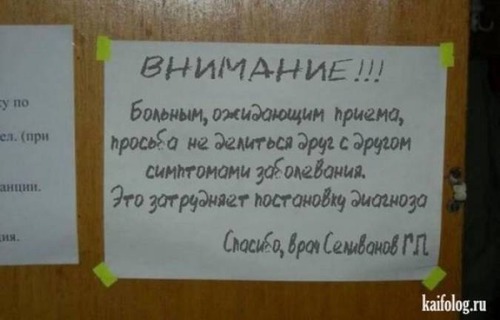 ку по
ел. (при
анции.
ния.
ВНИМАНИЕ!!!
Больным, ожидающим приема,
просьба не делиться друг с другом
симптомами заболевания.
Это затрудняет постановку диагноза
Спасибо, врач Селиванов Г.П.
kaifolog.ru